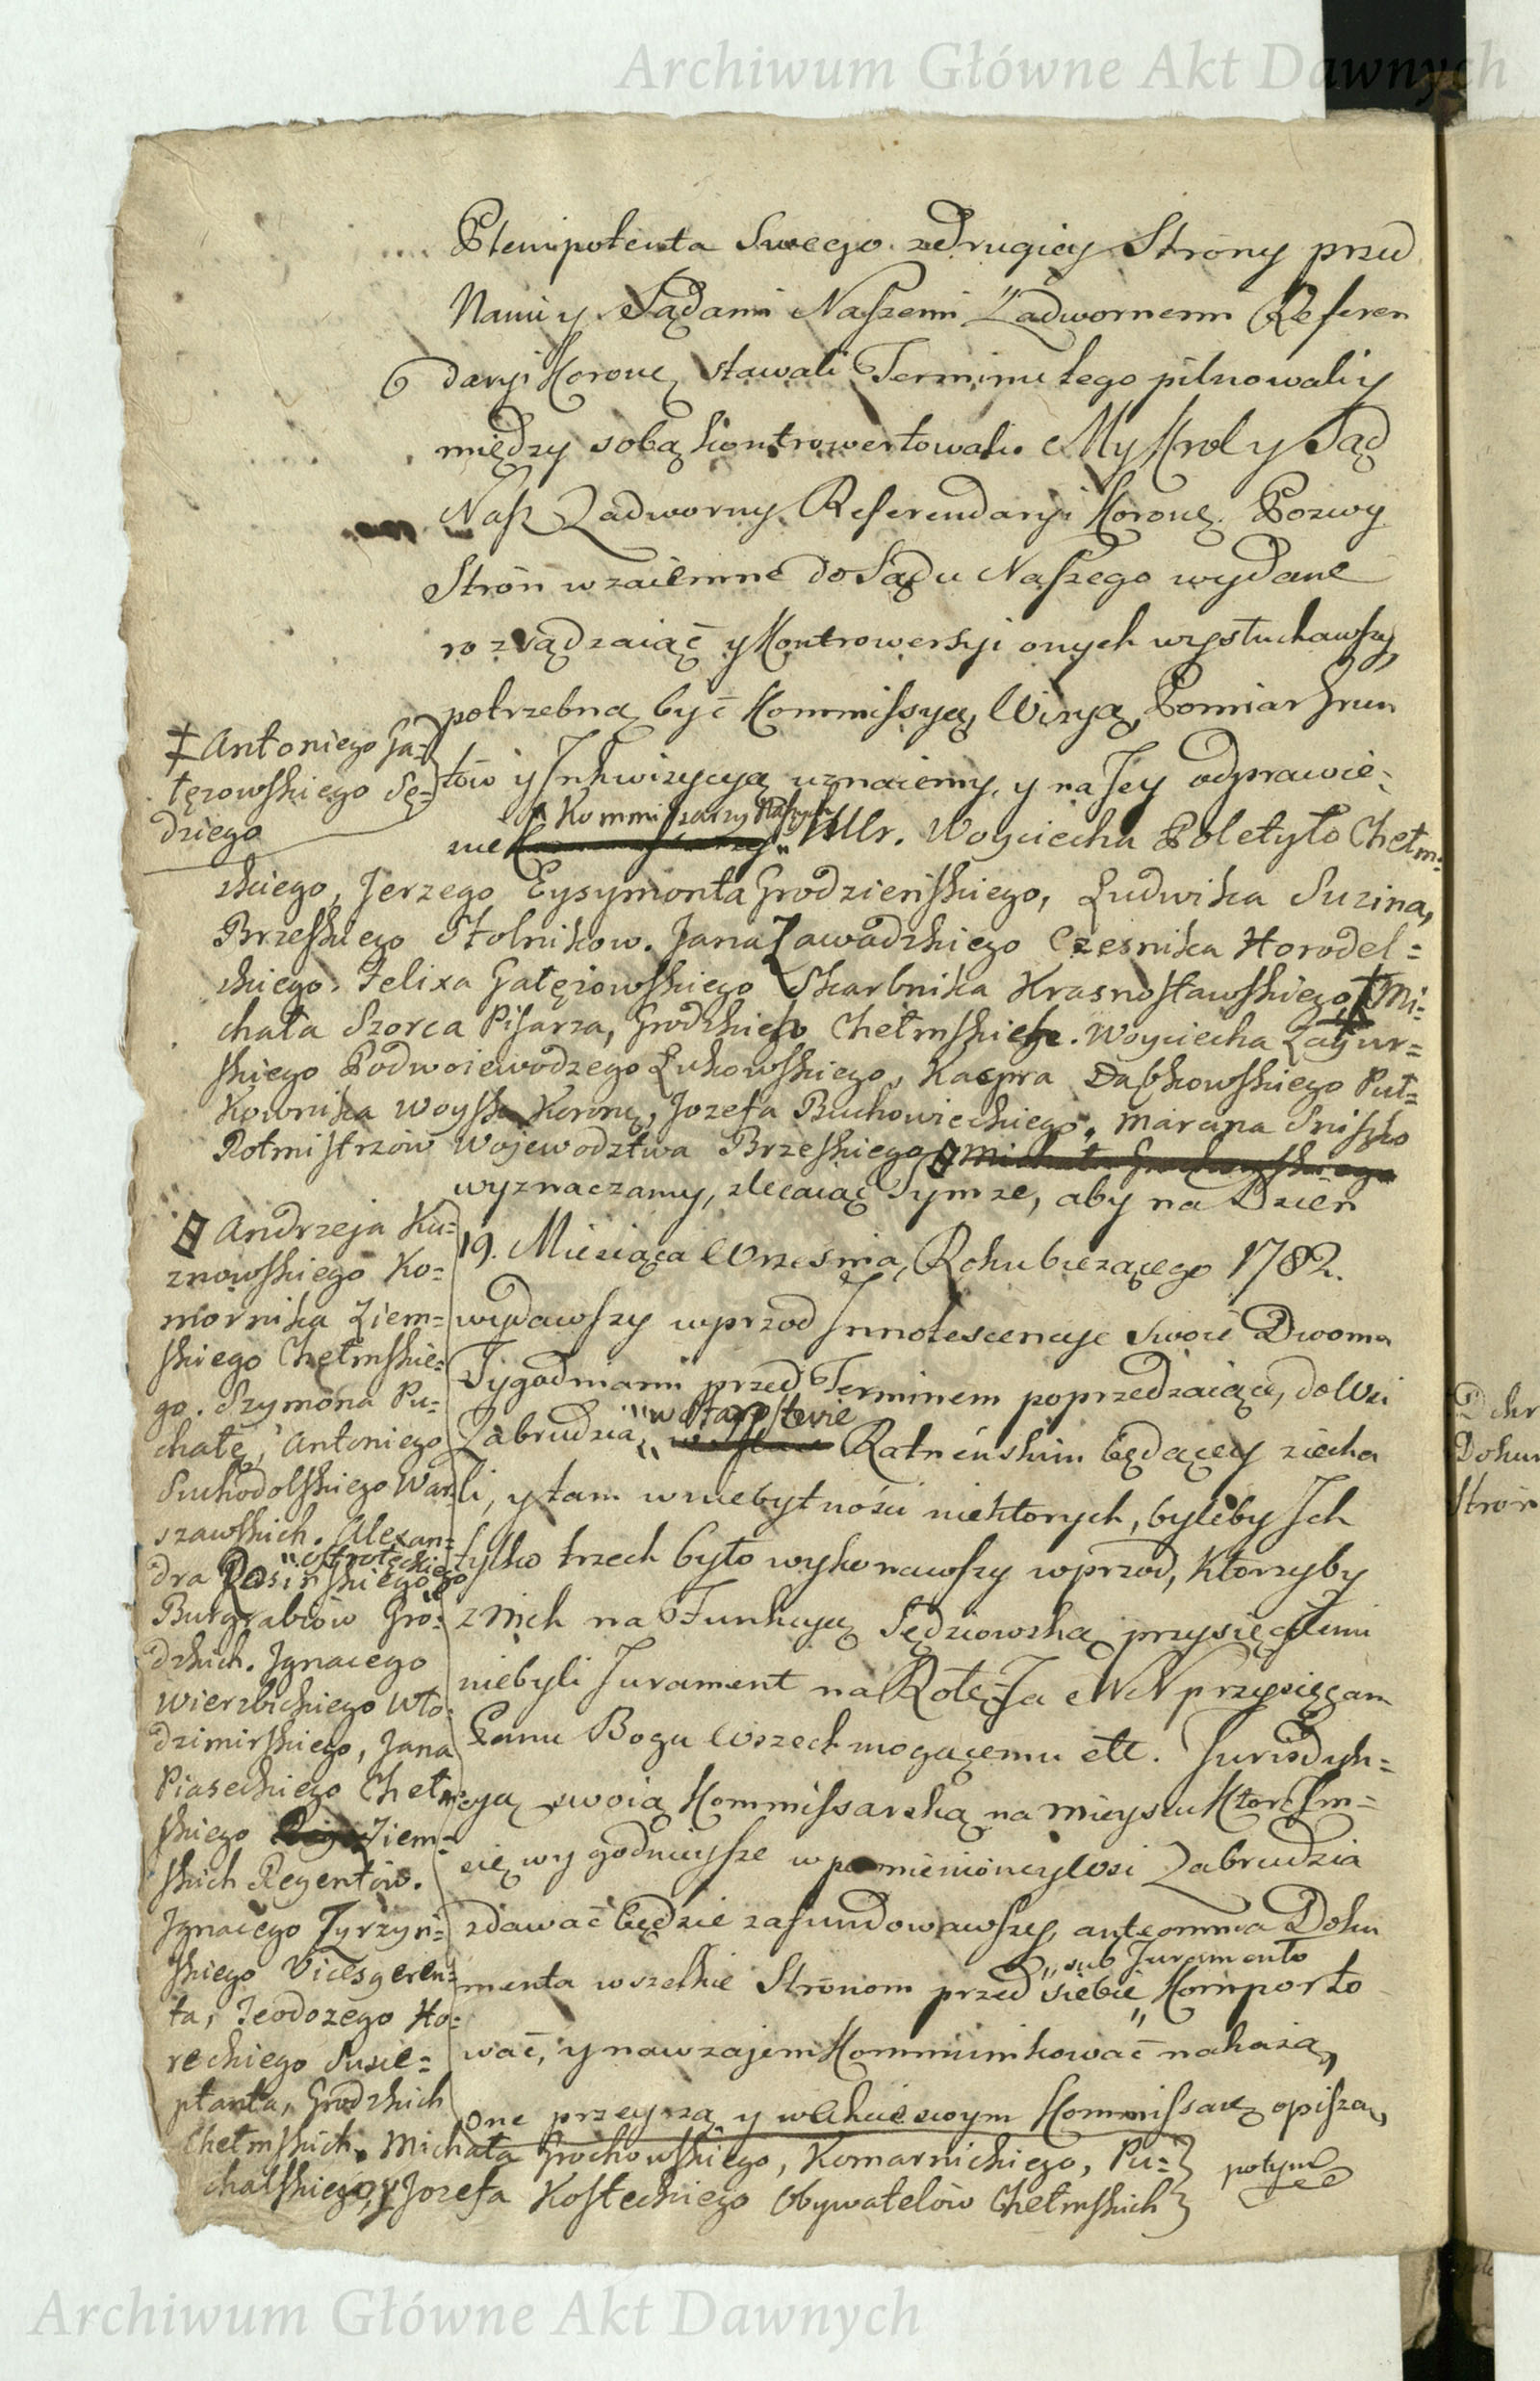 Archiwum Główne Akt Dawnych
Plenipotenta Swego z Drugiey Strony przed
Nami y Sądami Naszemi Zadwornemi Referen
daryi Koronę stawali Terminu tego pilnowali y
między sobą kontrowertowali. My Krol y Sąd
Nasz Zadworny Referendaryi Koronę. Pozwy
Strón wzaiemne do Sądu Naszego wydane
rozsądzaiąc y Kontrowersyi onych wysłuchawszy,
potrzebną być Kommissyą, Wizyą, Pomiar Grun
tów y Inkwizycyą uznaiemy, y na Jey odprawie-
nie Kommissarzy Naszych UUr. Woyciecha Poletyło Chełm-
skiego, Jerzego Eysymonta Grodzieńskiego, Ludwika Suzina,
Brzeskiego Stolnikow. Jana Zawadzkiego Czesnika Horodel=
skiego. Felixa Gałęzowskiego Skarbnika Krasnostawskiego, ‡ Mi=
chała Szorca Pisarza, Grodzkiego Chełmskiego. Woyciecha
skiego Podwoiewodzego Łukowskiego, Kacpra Dąbkowskiego Puł=
Kownika Woyska Koronę, Jozefa Buchowieckiego, Marcina Sniszko
Rotmistrzów Wojewodztwa Brzeskiego
wyznaczamy, zlecaiąc Tymze, aby na Dzień
19. Miesiąca Wrzesnia, Roku biezącego 1782.
wydawszy wprzod Innotescencye Swoie Dwoma
Tygodniami przed Terminem poprzedzaiącą, do Wsi
Zabrudzia, "w Starostwie Ratneńskim będącey ziecha
li, y tam w niebytności niektorych, byleby Ich
tylko trzech było wykonawszy wprzod, Ktorzyby
z Nich na Funkcyą Sędziowską przysięgłemi
niebyli Jurament na Rotę Ja NN przysięgam
Panu Bogu Wszechmogącemu etc. Jurisdyk=
cyą swoią Kommissarską na mieyscu Ktore Im=
się wygodnieysze w pomienioney Wsi Zabrudzia
zdawać będzie zafundowawszy, ante omnia Doku
menta wszelkie Stronom przed siebie "sub Juramento" Komporto
wać, y nawzajem Kommunikować nakażą,
One przeyrzą y w Akcie swoym Kommissarę opiszą,
potym
‡ Antoniego Ga=
łęzowskiego Sę=
dziego
Andrzeja Ku=
znowskiego Ko=
mornika Ziem=
skiego Chełmskie=
go. Szymona Pu=
chałę, Antoniego
Suchodolskiego War=
szawskich. Alexan=
dra Rosinskiego "Ostrołęckiego
Burgrabiów Gro=
dzkich. Ignacego
Wierzbickiego Wło=
dzimirskiego, Jana
Piaseckiego Chełm=
skiego Ziem=
skich Regentów.
Ignacego Tyrzyń=
skiego Vicesgeren=
ta, Teodozego Ho=
reckiego Susce=
ptanta, Grodzkich
Chełmskich, Michała Grochowskiego, Komarnickiego, Pu=
chalskiego, y Jozefa Kosteckiego Obywatelów Chełmskich
Dokum
Stron
Archiwum Główne Akt Dawnych